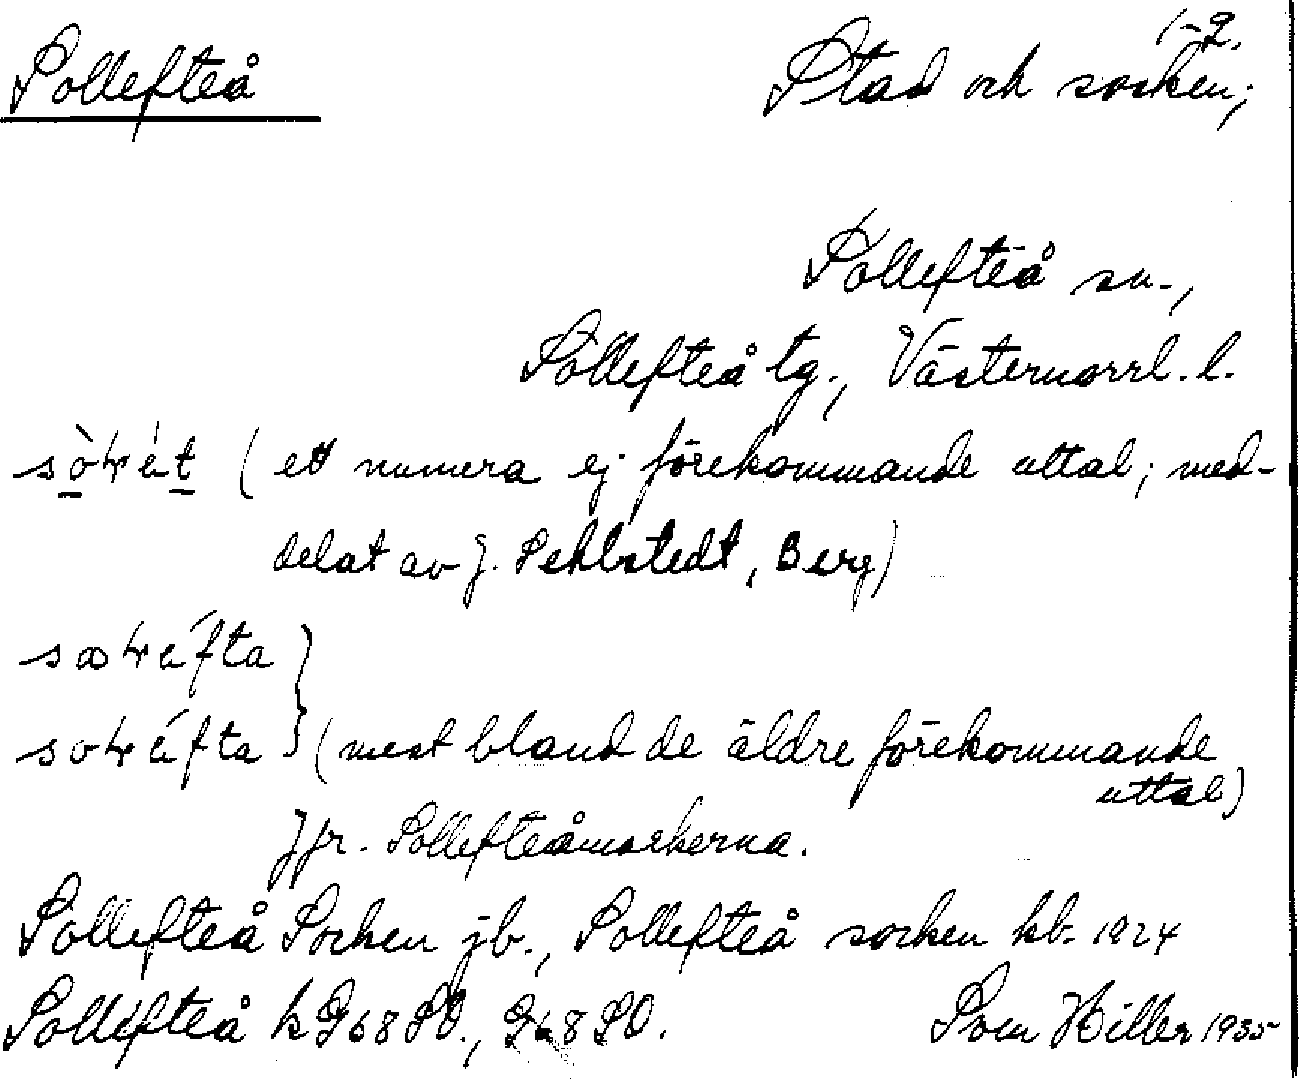 Sollefteå
1-2.
Stad och socken;
Sollefteå sn.,
Sollefteå tg., Västernorrl. l.
(ett numera ej förekommande uttal; med-
delat av J. Sehlstedt, Berg)
(mest bland de äldre förekommande
uttal)
Jfr. Sollefteåmarkerna.
Sollefteå Socken jb., Sollefteå socken kb. 1924
Sollefteå k 68 SO., 68 SO.
Sven Hiller 1935